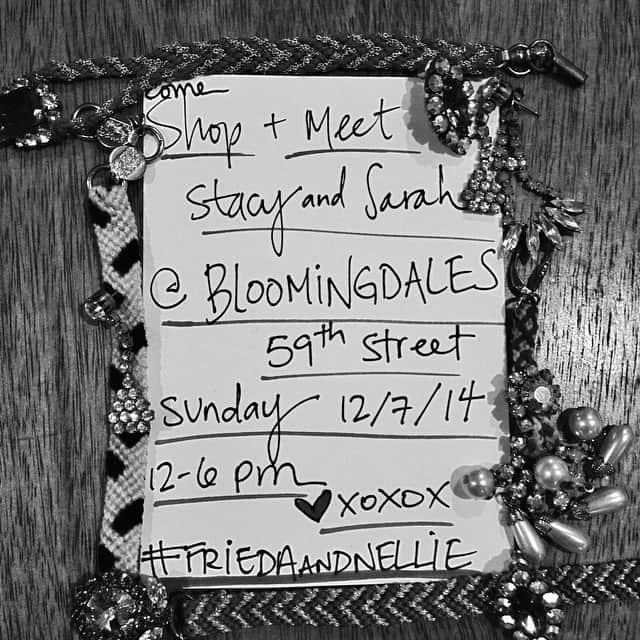 come
Shop + Meet
Stacy and Sarah
@ BLOOMiNGDALES
59th street
Sunday 12/7/14
12-6 pm
♥ xoxox
#FRiEDAANDNELLiE